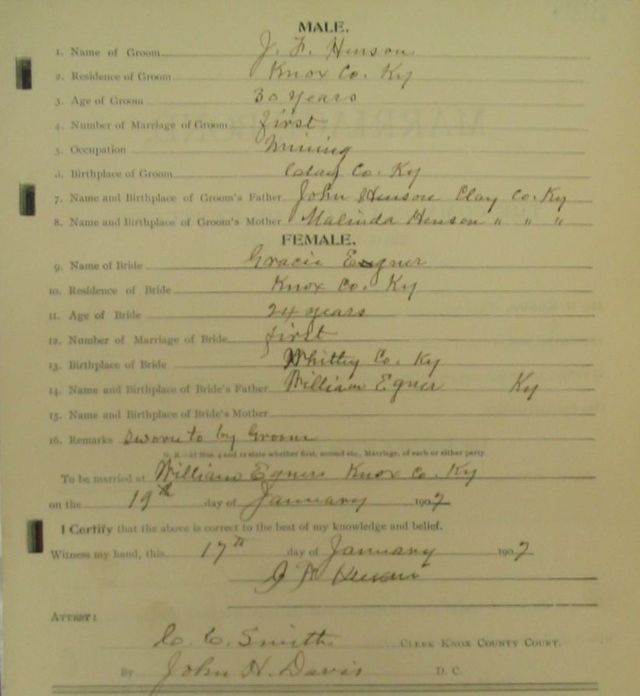 MALE.
1. Name of Groom J. F. Henson
2. Residence of Groom Knox Co. Ky
3. Age of Groom 30 years
4. Number of Marriage of Groom first
5. Occupation Mining
6. Birthplace of Groom Clay Co. Ky
7. Name and Birthplace of Groom's Father John Henson Clay Co. Ky
8. Name and Birthplace of Groom's Mother Malinda Henson " " "
FEMALE.
9. Name of Bride Gracie Egner
10. Residence of Bride Knox Co. Ky
11. Age of Bride 24 years
12. Number of Marriage of Bride first
13. Birthplace of Bride Whitley Co. Ky
14. Name and Birthplace of Bride's Father William Egner Ky
15. Name and Birthplace of Bride's Mother
16. Remarks Sworn to by Groom
N. B.—At Nos. 4 and 12 state whether first, second etc., Marriage, of each or either party.
To be married at William Egners Knox Co. Ky
on the 19th day of January 1907
I Certify that the above is correct to the best of my knowledge and belief.
Witness my hand, this 17th day of January 1907
J F Henson
ATTEST:
C. C. Smith CLERK KNOX COUNTY COURT.
By John H. Davis D. C.